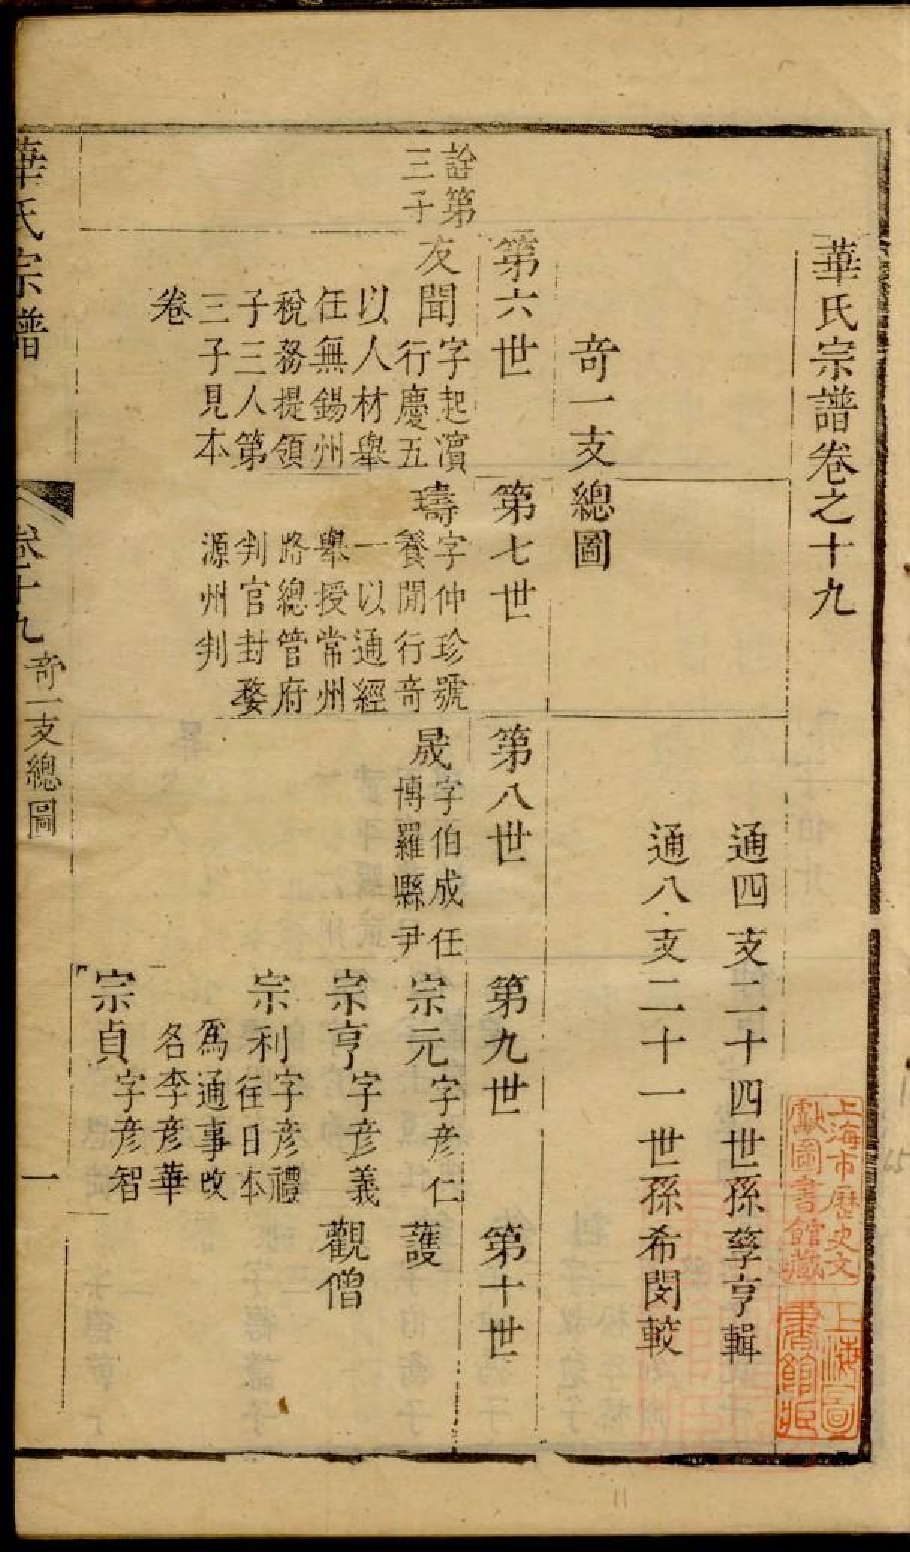 華氏宗譜卷之十九
通四支二十四世孫孳亨輯
通八支二十一世孫希閔較
奇一支總圖
第六世
第七世
第八世
第九世
第十世
詮第
三子
友聞
字起濵
行慶五
以人材舉
任無錫州
稅務提領
子三人第
三子見本
卷
璹
字仲珍號
養閒行奇
一以通經
舉授常州
路總管府
判官封婺
源州判
晟
字伯成任
博羅縣尹
宗元
字彥仁
護
宗亨
字彥義
觀僧
宗利
字彥禮
往日本
為通事改
名李彥華
宗貞
字彥智
華氏宗譜
卷十九
奇一支總圖
一
上海市歷史文
獻圖書館藏
上海圖
書館藏